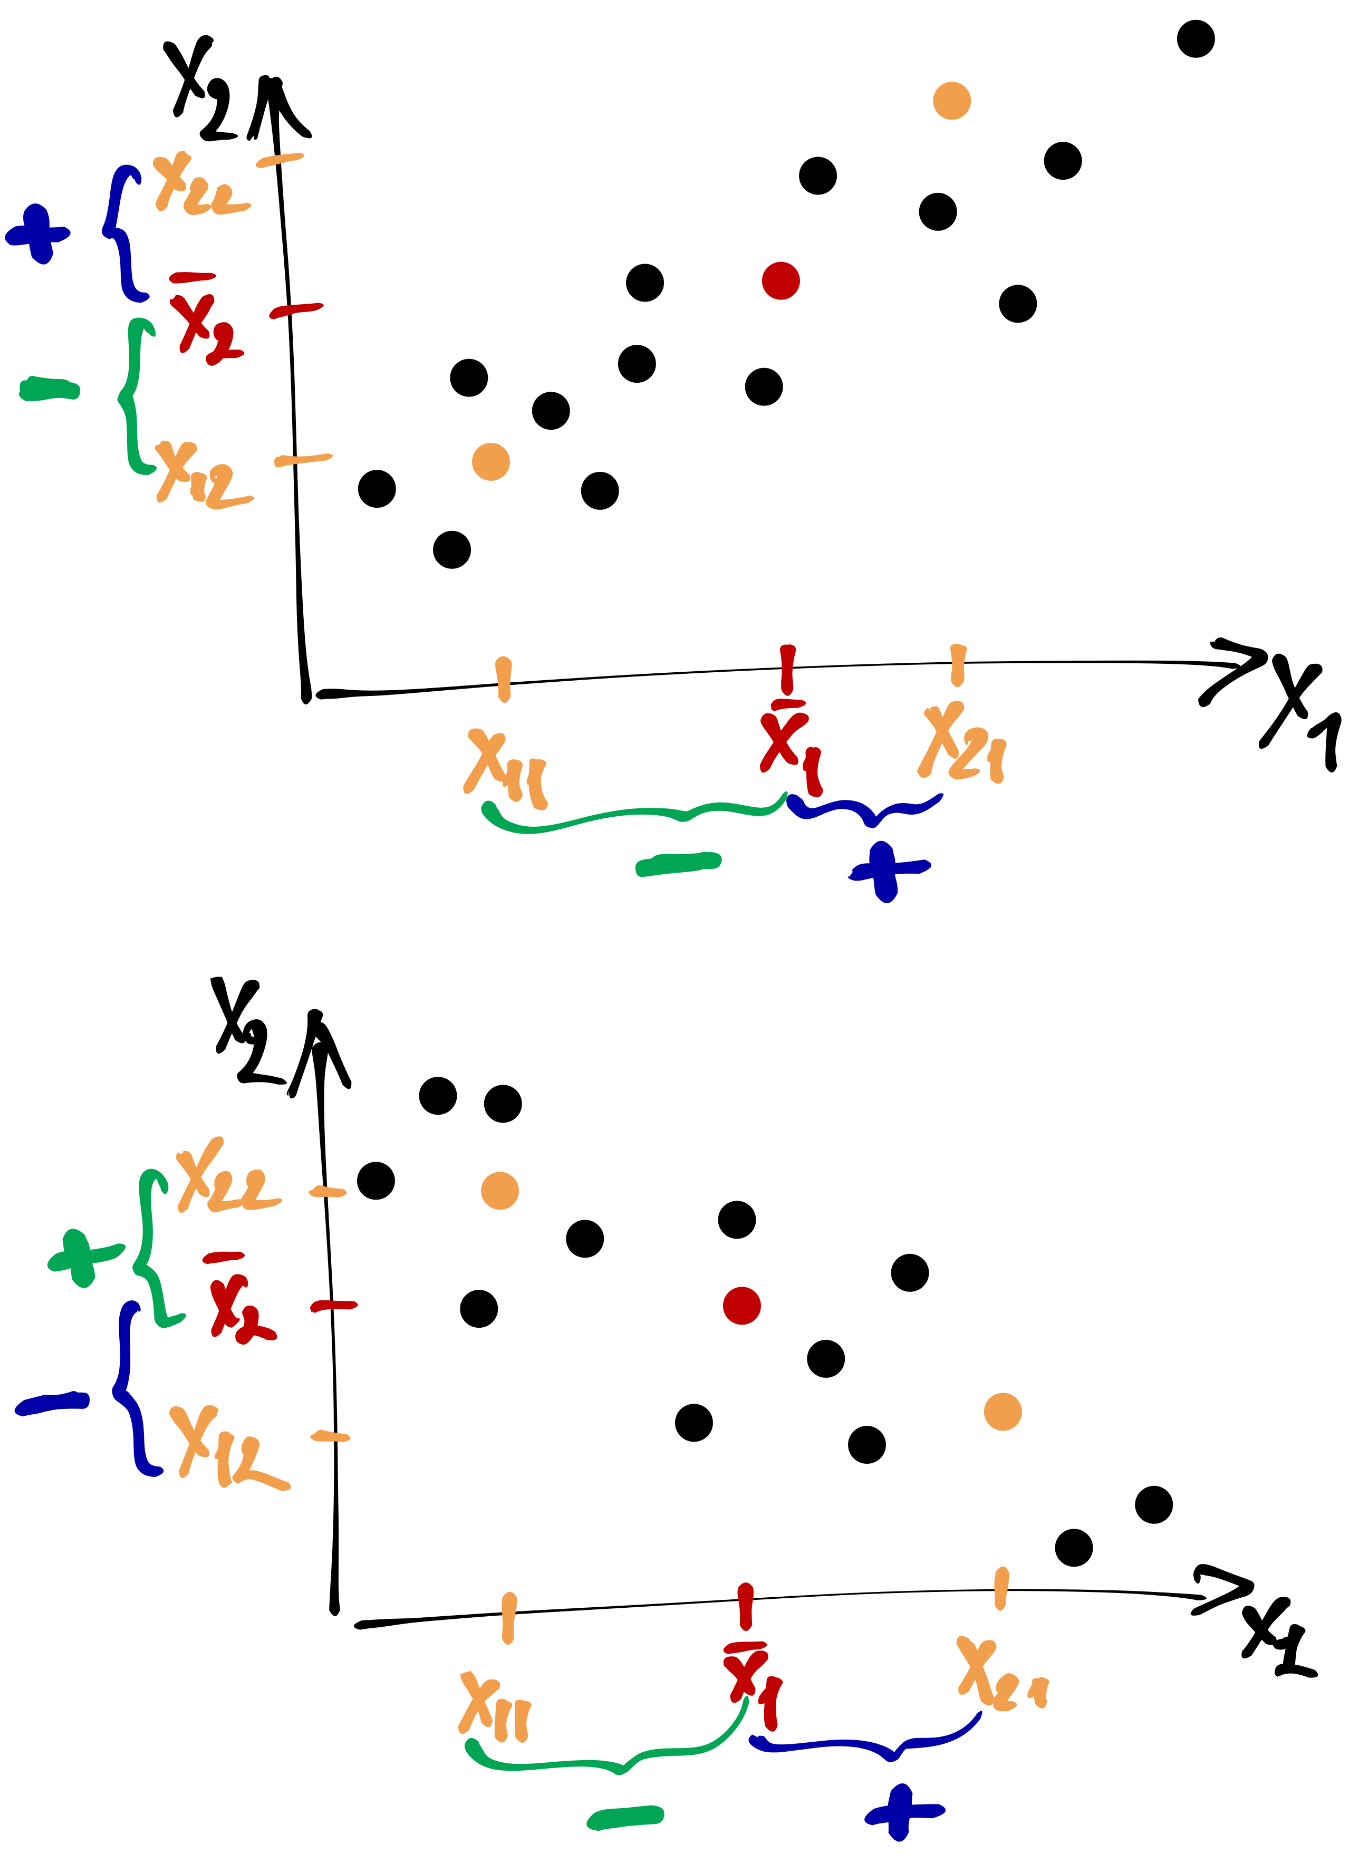 X₂
x₂₂
+
x̄₂
−
x₁₂
X₁
x₁₁
x̄₁
x₂₁
−
+
X₂
x₂₂
+
x̄₂
−
x₁₂
X₁
x₁₁
x̄₁
x₂₁
−
+